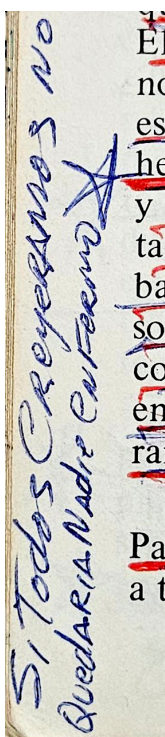 Si Todos Creyeramos no
Quedaria Nadie Enfermo
El
no
es
he
y
ta
ba
so
co
en
ra
Pa
a t